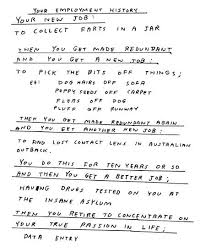 YOUR EMPLOYMENT HISTORY
YOUR NEW JOB:
TO COLLECT FARTS IN A JAR
THEN YOU GET MADE REDUNDANT
AND YOU GET A NEW JOB:
TO PICK THE BITS OFF THINGS;
EG: DOG HAIRS OFF SOFA
POPPY SEEDS OFF CARPET
FLEAS OFF DOG
FLUFF OFF RUNWAY
THEN YOU GET MADE REDUNDANT AGAIN
AND YOU GET ANOTHER NEW JOB:
TO FIND LOST CONTACT LENS IN AUSTRALIAN
OUTBACK.
YOU DO THIS FOR TEN YEARS OR SO
AND THEN YOU GET A BETTER JOB;
HAVING DRUGS TESTED ON YOU AT
THE INSANE ASYLUM
THEN YOU RETIRE TO CONCENTRATE ON
YOUR TRUE PASSION IN LIFE;
DATA ENTRY